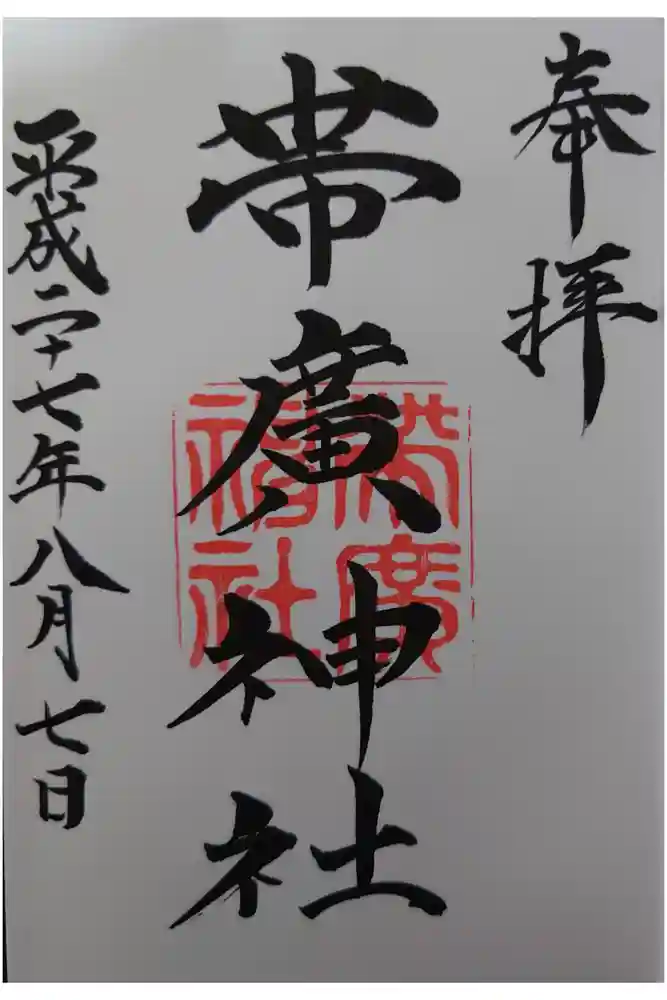 奉拝
帯廣神社
帯廣神社
平成二十七年八月七日